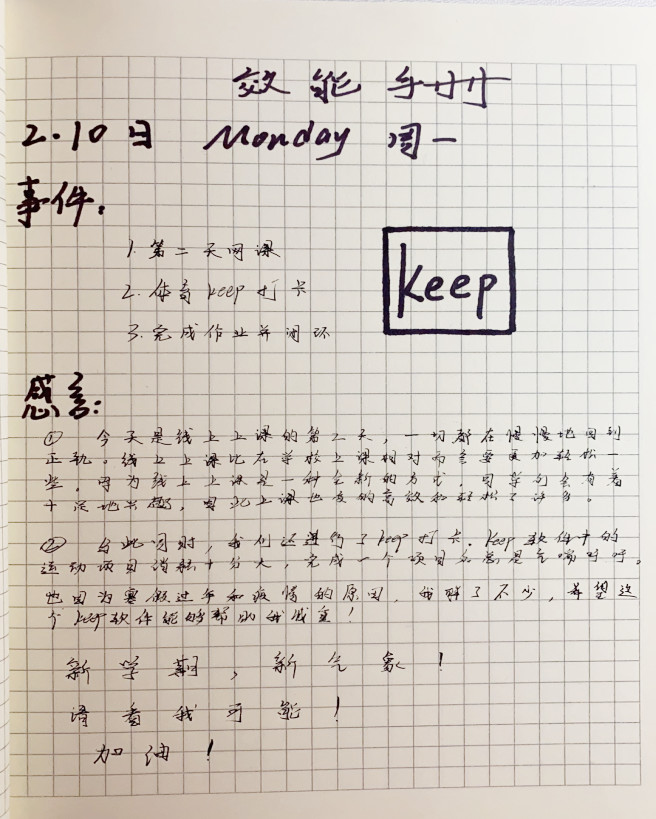 效能手册
2.10日 Monday 周一
事件:
1. 第二天网课
2. 体育keep打卡
keep
3. 完成作业并闭环
感言:
① 今天是线上上课的第二天,一切都在慢慢地回到
正轨。线上上课比在学校上课相对而言要更加轻松一
些,因为线上上课是一种全新的方式,同学们会有着
十足地兴趣,因此上课也变的高效和轻松了许多。
② 与此同时,我们还进行了keep打卡. keep软件中的
运动项目消耗十分大,完成一个项目后总是气喘吁吁。
也因为寒假过年和疫情的原因,我胖了不少,希望这
个keep软件能够帮助我减重!
新学期,新气象!
请看我可能!
加油!